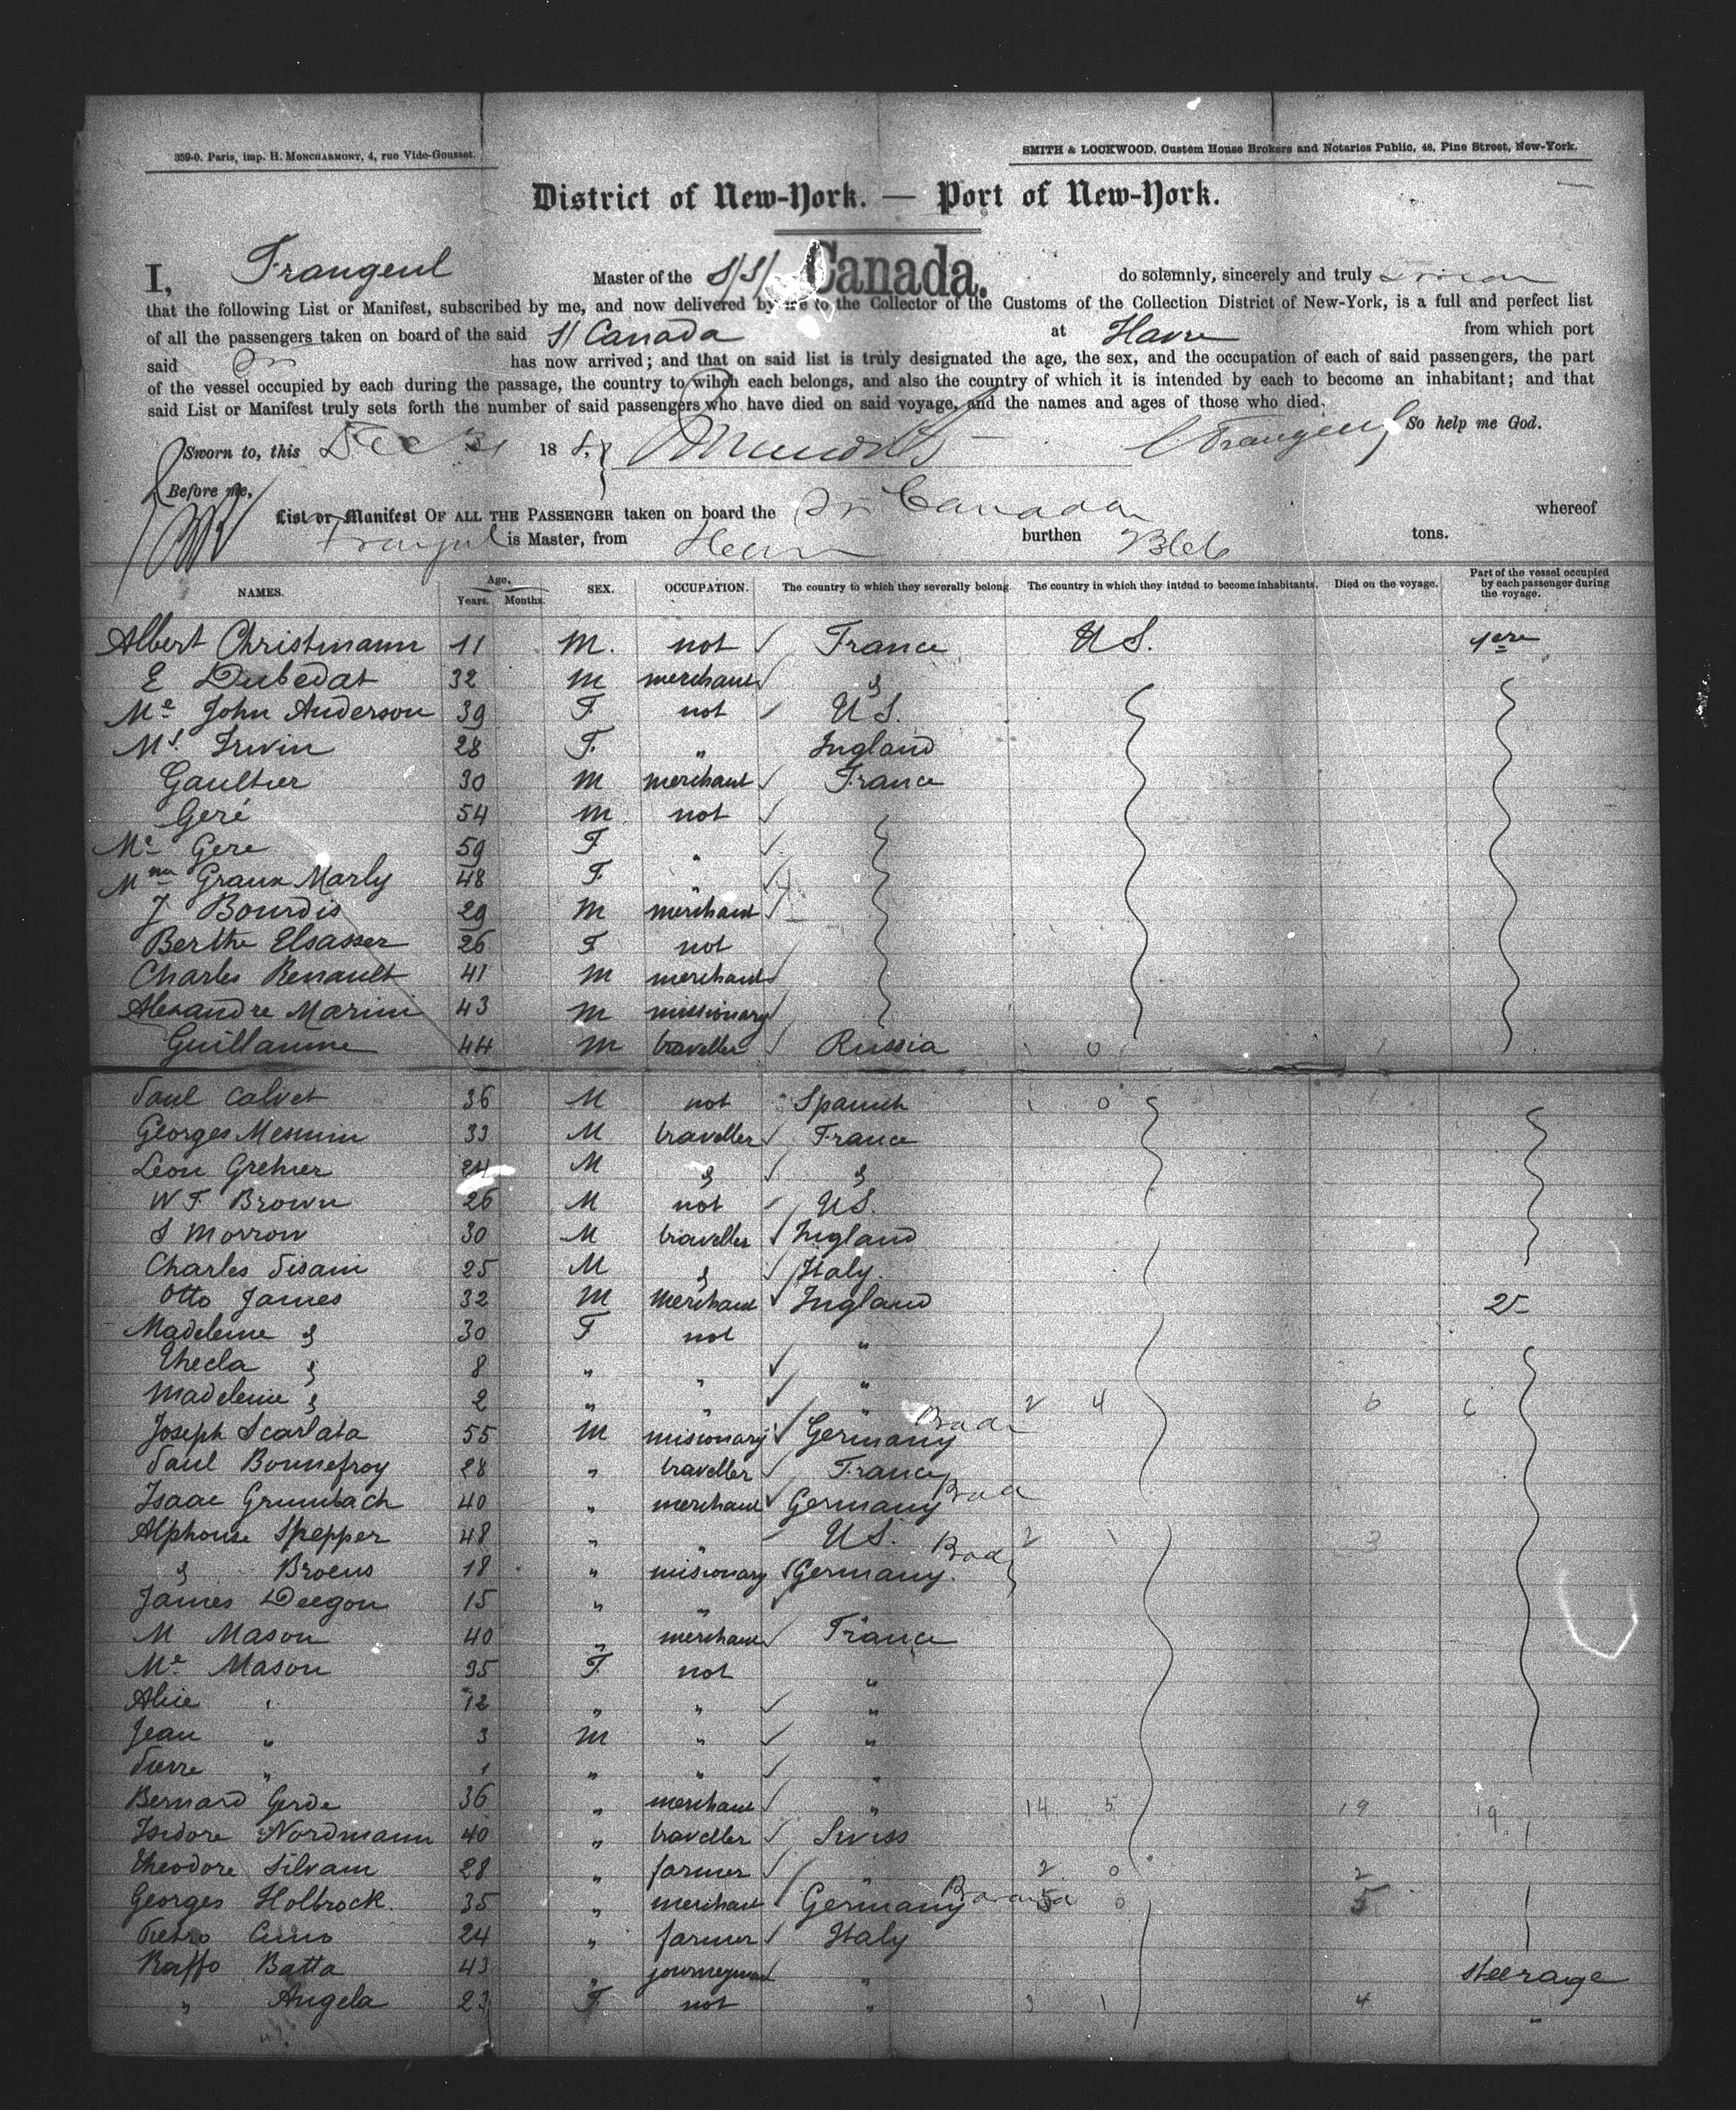 359-0. Paris, imp. H. MONCHARMONT, 4, rue Vide-Gousset.
SMITH & LOCKWOOD, Custom House Brokers and Notaries Public, 48, Pine Street, New-York.
District of New-York. — Port of New-York.
I, Frangeul Master of the S/S/ Canada. do solemnly, sincerely and truly
that the following List or Manifest, subscribed by me, and now delivered by me to the Collector of the Customs of the Collection District of New-York, is a full and perfect list
of all the passengers taken on board of the said S/ Canada at Havre from which port
said has now arrived; and that on said list is truly designated the age, the sex, and the occupation of each of said passengers, the part
of the vessel occupied by each during the passage, the country to wihch each belongs, and also the country of which it is intended by each to become an inhabitant; and that
said List or Manifest truly sets forth the number of said passengers who have died on said voyage, and the names and ages of those who died.
So help me God.
Sworn to, this Dec 18 Frangeul
Before me,
List or Manifest OF ALL THE PASSENGER taken on board the Canada whereof
Frangeul is Master, from burthen tons.
NAMES. Age. Years. Months. SEX. OCCUPATION. The country to which they severally belong The country in which they intend to become inhabitants. Died on the voyage. Part of the vessel occupied by each passenger during the voyage.
Albert Christmann 11 M. not France U S. 1ere
E Dubedat 32 M merchant
Me John Anderson 39 F not U S.
Ms. Irwin 28 F. " Ingland
Gaultier 30 M merchant France
Geré 54 M not
Me Gere 59 F "
Mme Graux Marly 48 F "
J Bourdis 29 M merchant
Berthe Elsasser 26 F not
Charles Renault 41 M merchant
Alexandre Marini 43 M missionary
Guillaume 44 M traveller Russia 0
Paul Calvet 36 M not Spanish 0
Georges Mesmin 33 M traveller France
Léon Grehier 24 M
W F. Brown 26 M not US.
S Morrow 30 M traveller Ingland
Charles Pisani 25 M Italy.
Otto James 32 M Merchant Ingland 2
Madeleine 30 F not "
Thecla 8 " " "
Madeleine 2 " " " 2 4 6 6
Joseph Scarlata 55 M missionary Germany
Paul Bonnefroy 28 " traveller France
Isaac Grumbach 40 " merchant Germany
Alphonse Spepper 48 " " U S. 2 1 3
Broeus 18 " missionary Germany.
James Deegon 15 " "
M Mason 40 " merchant France
Me Mason 35 F. not "
Alice " 12 " " "
Jean " 3 M " "
Pierre " 1 " " "
Bernard Gerde 36 " merchant " 14 5 19 19
Isidore Nordmann 40 " traveller Swiss
Theodore Silvam 28 " farmer " 2 0 2
Georges Holbrock. 35 " merchant Germany 5 0 5
Pietro 24 " farmer Italy
Raffo Batta 43 " journeyman " steerage
" Angela 23 F. not " 3 1 4 "